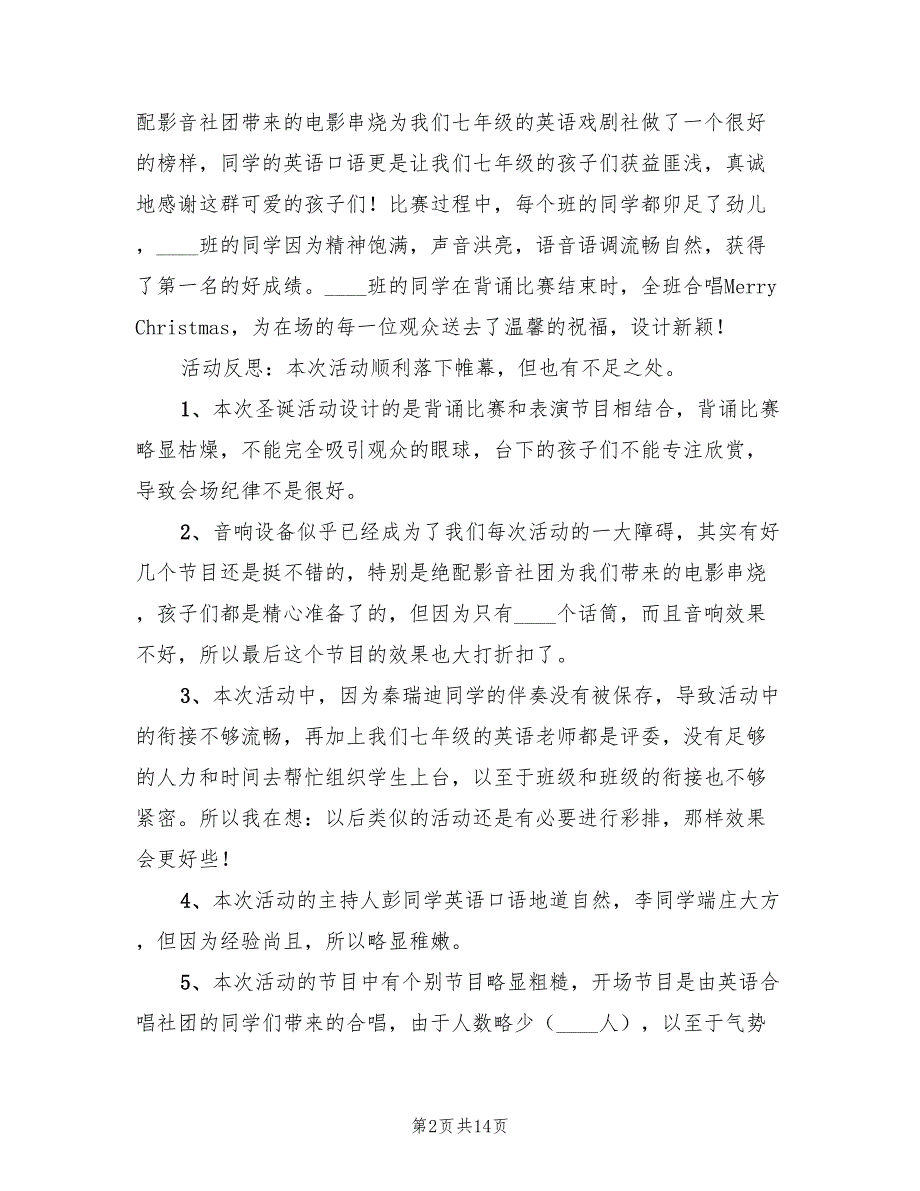 配影音社团带来的电影串烧为我们七年级的英语戏剧社做了一个很好
的榜样，同学的英语口语更是让我们七年级的孩子们获益匪浅，真诚
地感谢这群可爱的孩子们！比赛过程中，每个班的同学都卯足了劲儿
，____班的同学因为精神饱满，声音洪亮，语音语调流畅自然，获得
了第一名的好成绩。____班的同学在背诵比赛结束时，全班合唱Merry
Christmas，为在场的每一位观众送去了温馨的祝福，设计新颖！
活动反思：本次活动顺利落下帷幕，但也有不足之处。
1、本次圣诞活动设计的是背诵比赛和表演节目相结合，背诵比赛
略显枯燥，不能完全吸引观众的眼球，台下的孩子们不能专注欣赏，
导致会场纪律不是很好。
2、音响设备似乎已经成为了我们每次活动的一大障碍，其实有好
几个节目还是挺不错的，特别是绝配影音社团为我们带来的电影串烧
，孩子们都是精心准备了的，但因为只有____个话筒，而且音响效果
不好，所以最后这个节目的效果也大打折扣了。
3、本次活动中，因为秦瑞迪同学的伴奏没有被保存，导致活动中
的衔接不够流畅，再加上我们七年级的英语老师都是评委，没有足够
的人力和时间去帮忙组织学生上台，以至于班级和班级的衔接也不够
紧密。所以我在想：以后类似的活动还是有必要进行彩排，那样效果
会更好些！
4、本次活动的主持人彭同学英语口语地道自然，李同学端庄大方
，但因为经验尚且，所以略显稚嫩。
5、本次活动的节目中有个别节目略显粗糙，开场节目是由英语合
唱社团的同学们带来的合唱，由于人数略少（____人），以至于气势
第2页共14页